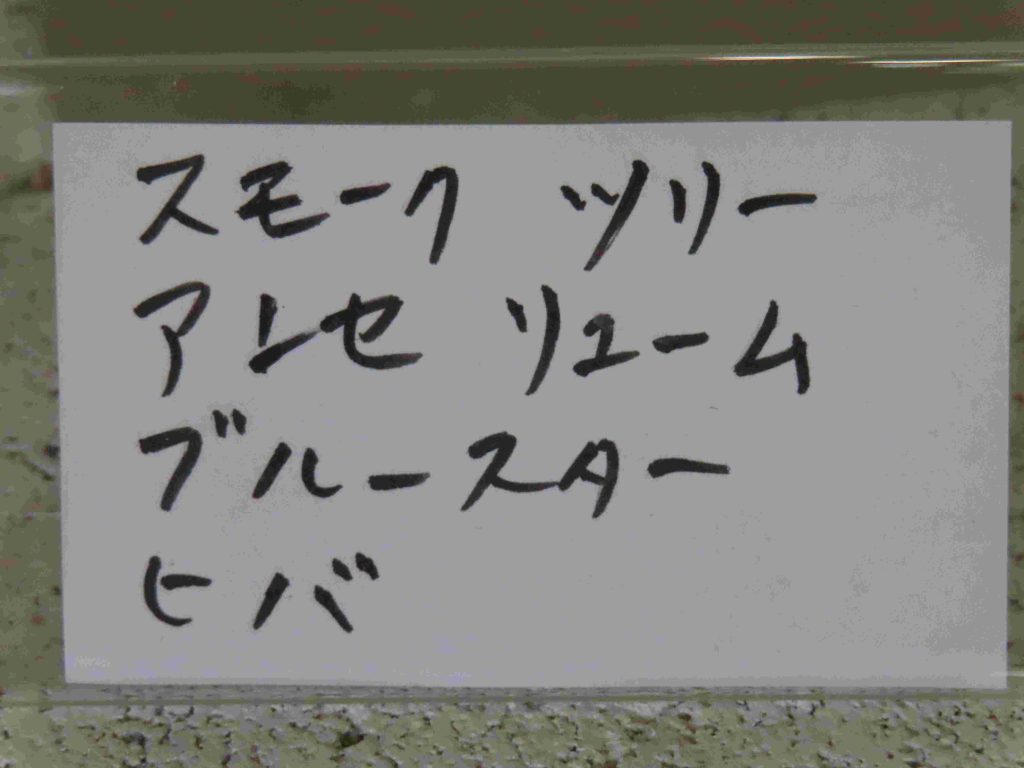 スモーク ツリー
アンセリューム
ブルースター
ヒバ